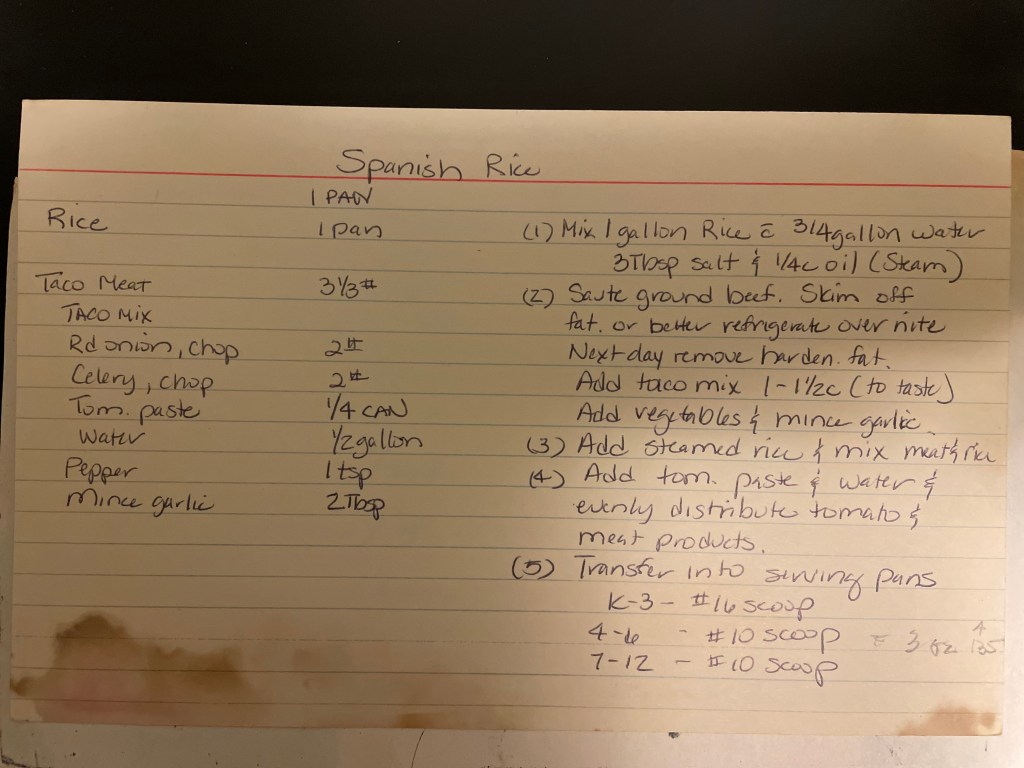 Spanish Rice
1 PAN
Rice 1 pan
Taco Meat 3 1/3 #
TACO MIX
Rd onion, chop 2#
Celery, chop 2#
Tom. paste 1/4 CAN
Water 1/2 gallon
Pepper 1 tsp
Mince garlic 2 Tbsp
(1) Mix 1 gallon Rice c̄ 3/4 gallon water
3 Tbsp salt & 1/4 c oil (Steam)
(2) Saute ground beef. Skim off
fat. or better refrigerate over nite
Next day remove harden. fat.
Add taco mix 1 - 1 1/2 c (to taste)
Add vegetables & mince garlic
(3) Add steamed rice & mix meat & rice
(4) Add tom. paste & water &
evenly distribute tomato &
meat products.
(5) Transfer into serving pans
K-3 - #16 scoop
4-6 - #10 scoop = 3 oz
7-12 - #10 scoop